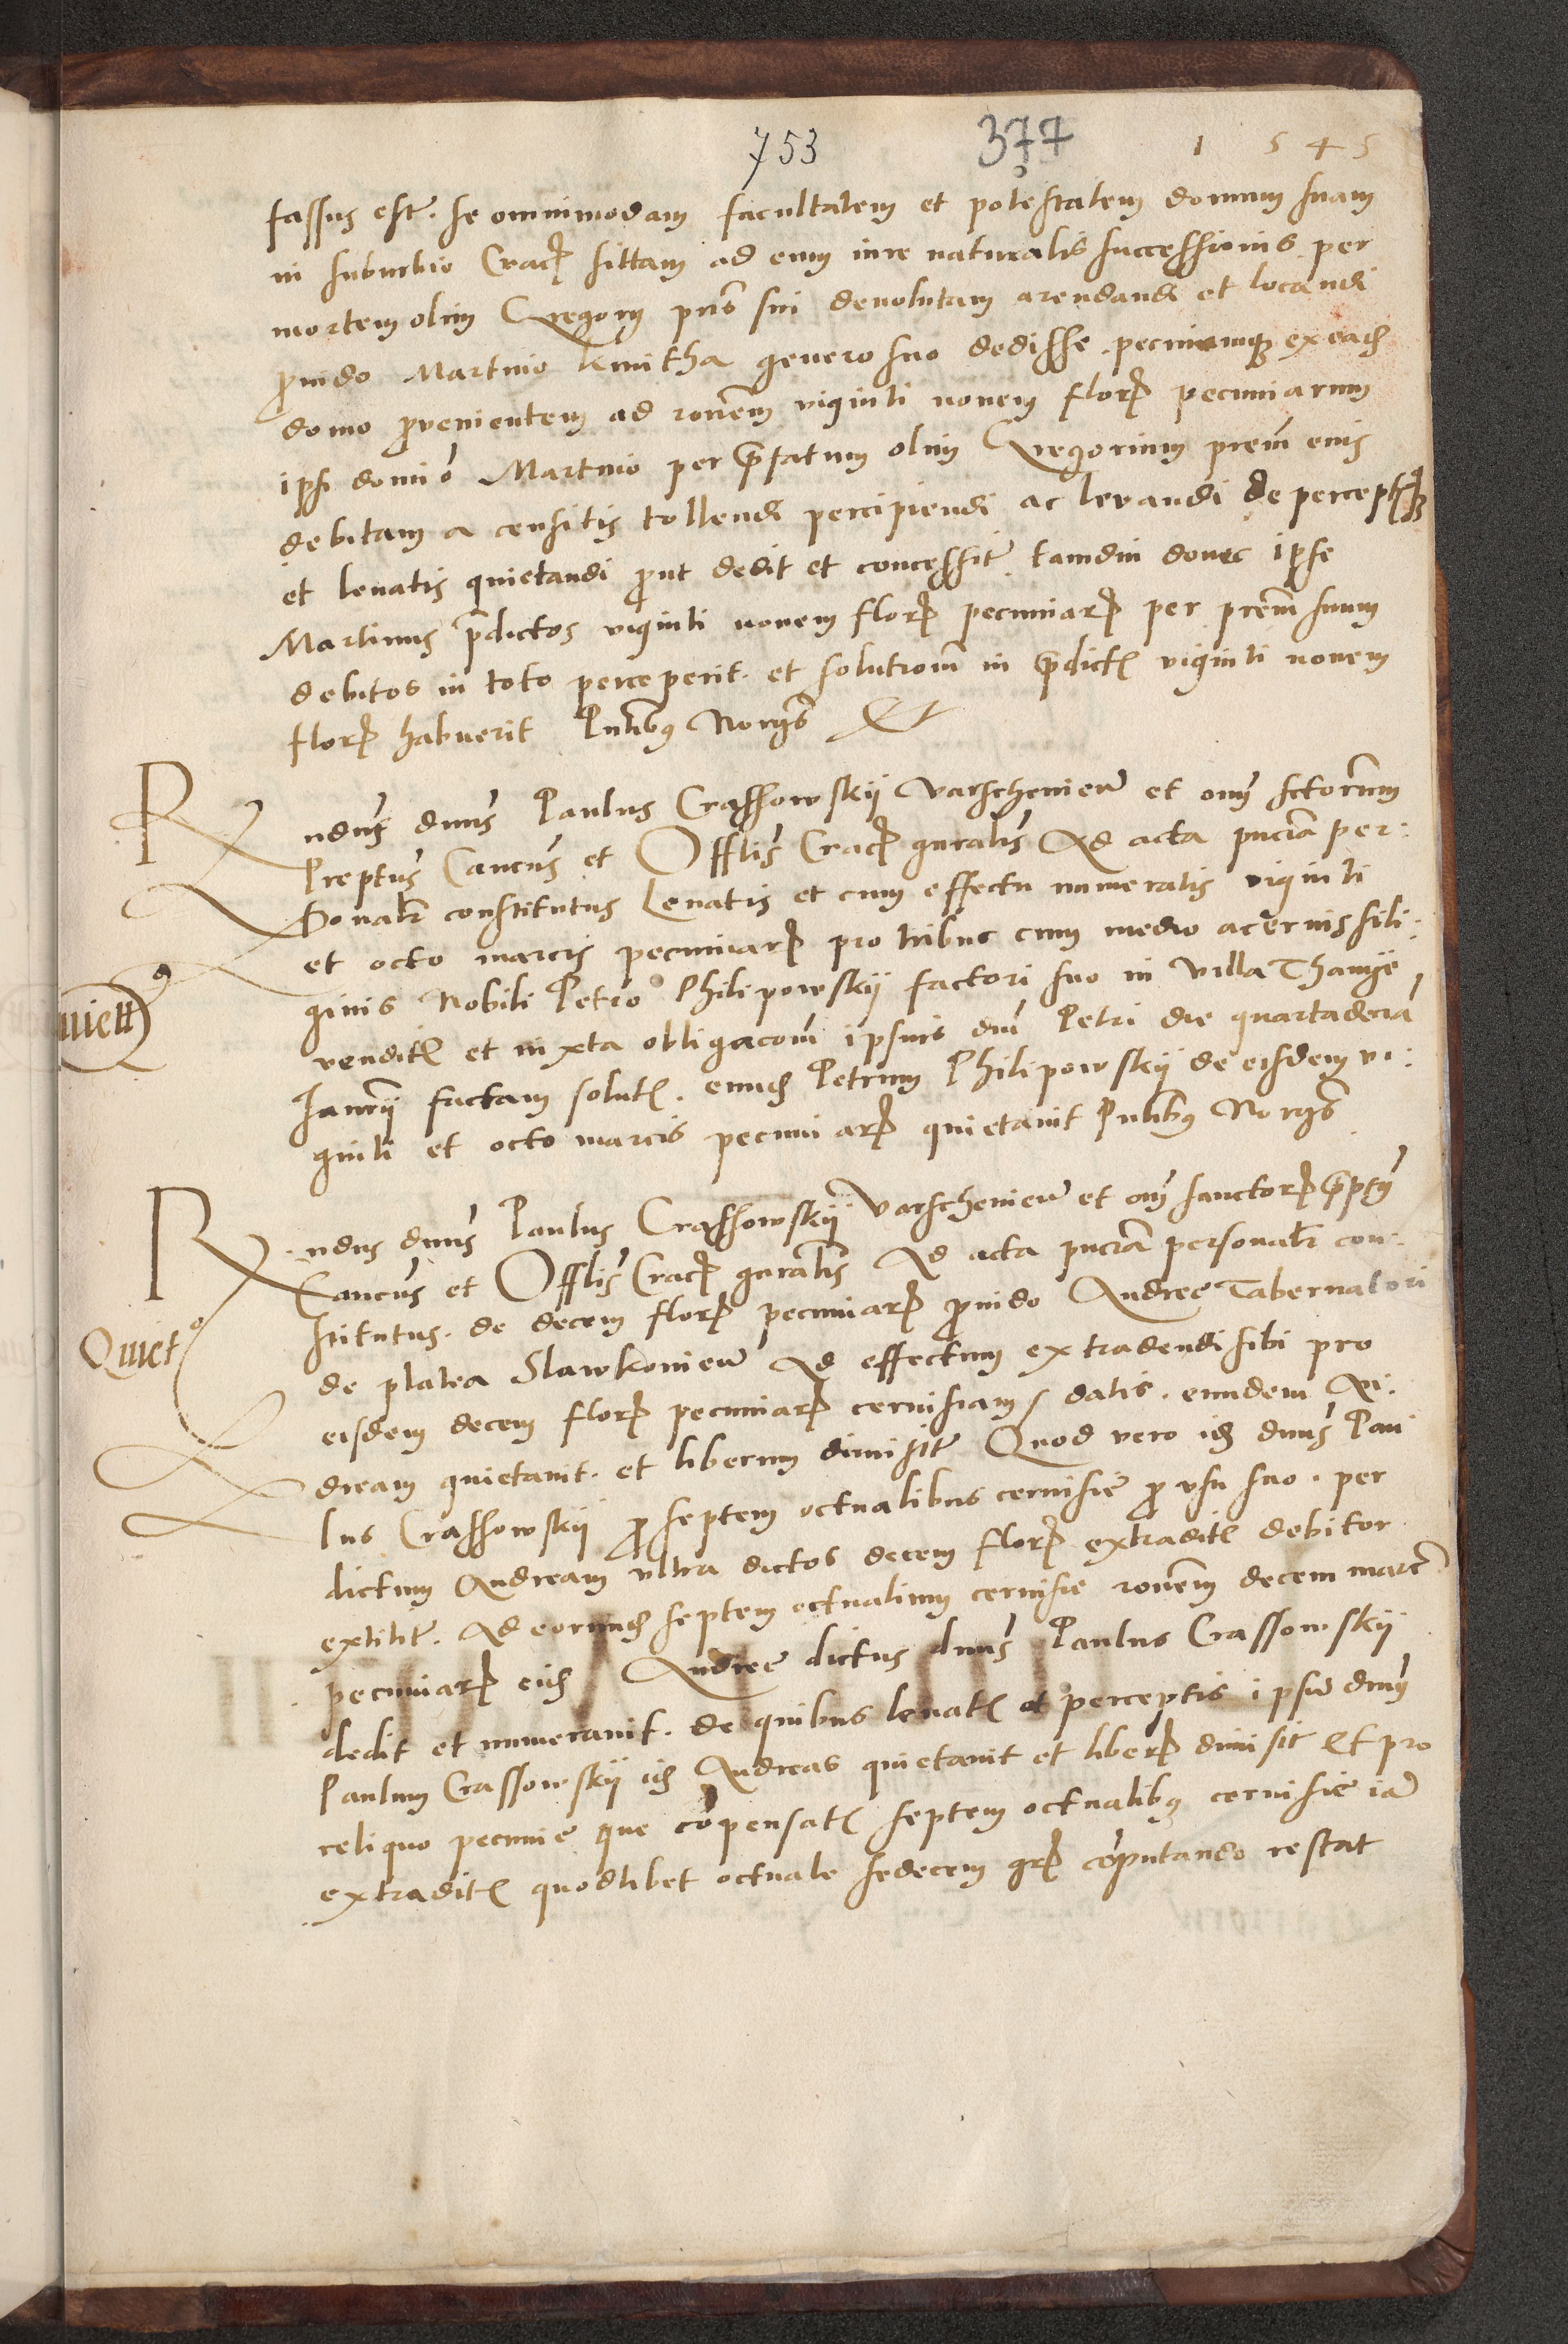 753 377 1 5 4 5
fassus est. se omnimodam facultatem et potestatem domum suam
in suburbio Crac sittam ad eum iure naturalis successionis per
mortem olim Gregorij pris sui devolutam arendandi et locandi
provido Martino kmitha genero suo dedisse pecuniamq ex eadem
domo provenientem ad ronem viginti novem flor pecuniarum
ipsi domino Martino per prefatum olim Gregorium prem eius
debitam a censitis tollendi percipiendi ac levandi de perceptisq
et levatis quietandi prout dedit et concessit tamdiu donec ipse
Martinus predictos viginti novem flor pecuniar per prem suum
debitos in toto perceperit. et solutionem in predictis viginti novem
flor habuerit Pntibus Norijs Et
Rndus dnus Paulus Crassowskij Varscheviem et omnium sctorum
Preptus Cancus et Offlis Crac gnralis Ad acta pncia per:
sonaliter constitutus Levatis et cum effectu numeratis viginti
et octo marcis pecuniar pro tribus cum medio acervis sili:
ginis Nobili Petro Philipowskij factori suo in villa
venditis et iuxta obligacom ipsius dni Petri die quartadecima
Januarij factam solutis. eundem Petrum Philipowskij de eisdem vi:
ginti et octo marcis pecuniar quietavit Pntibus Norijs
Quiett
Rndus dnus Paulus Crassowskij Varscheviem et omnium sanctor preptus
Cancus et Offlis Crac gnralis Ad acta pncia personaliter con:
stitutus. de decem flor pecuniar provido Andree Tabernatori
Quiet
de platea Slawkoviem Ad effectum extradendi sibi pro
eisdem decem flor pecuniar cervisiam datis. eundem An:
dream quietavit. et liberum dimisit Quod vero idem dnus Pau
lus Crassowskij pro septem octualibus cervisie pro usu suo. per
dictum Andream ultra dictos decem flor extraditis debitor
extitit. Ad eorundem septem octualium cervisie ronem decem marc
pecuniar eidem Andree dictus dnus Paulus Crassowskij
dedit et numeravit. de quibus levatis et perceptis ipsum dnum
Paulum Crassowskij idem Andreas quietavit et liber dimisit Et pro
reliquo pecunie que compensatis septem octualibus cervisie iam
extraditis quodlibet octuale sedecem gr computando restat